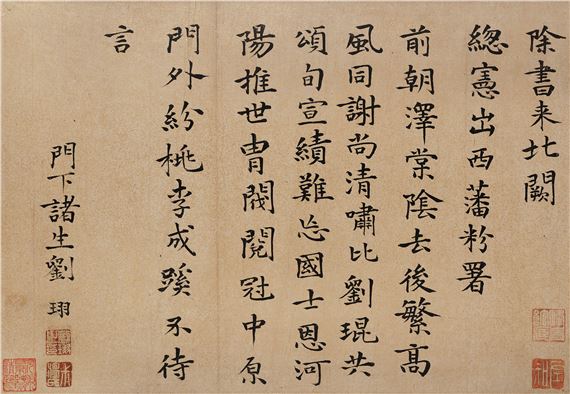 除書来北闕
總憲出西藩粉署
前朝澤棠陰去後繁高
風同謝尚清嘯比劉琨共
頌旬宣績難忘國士恩河
陽推世胄閥閱冠中原
門外紛桃李成蹊不待
言
門下諸生劉珝